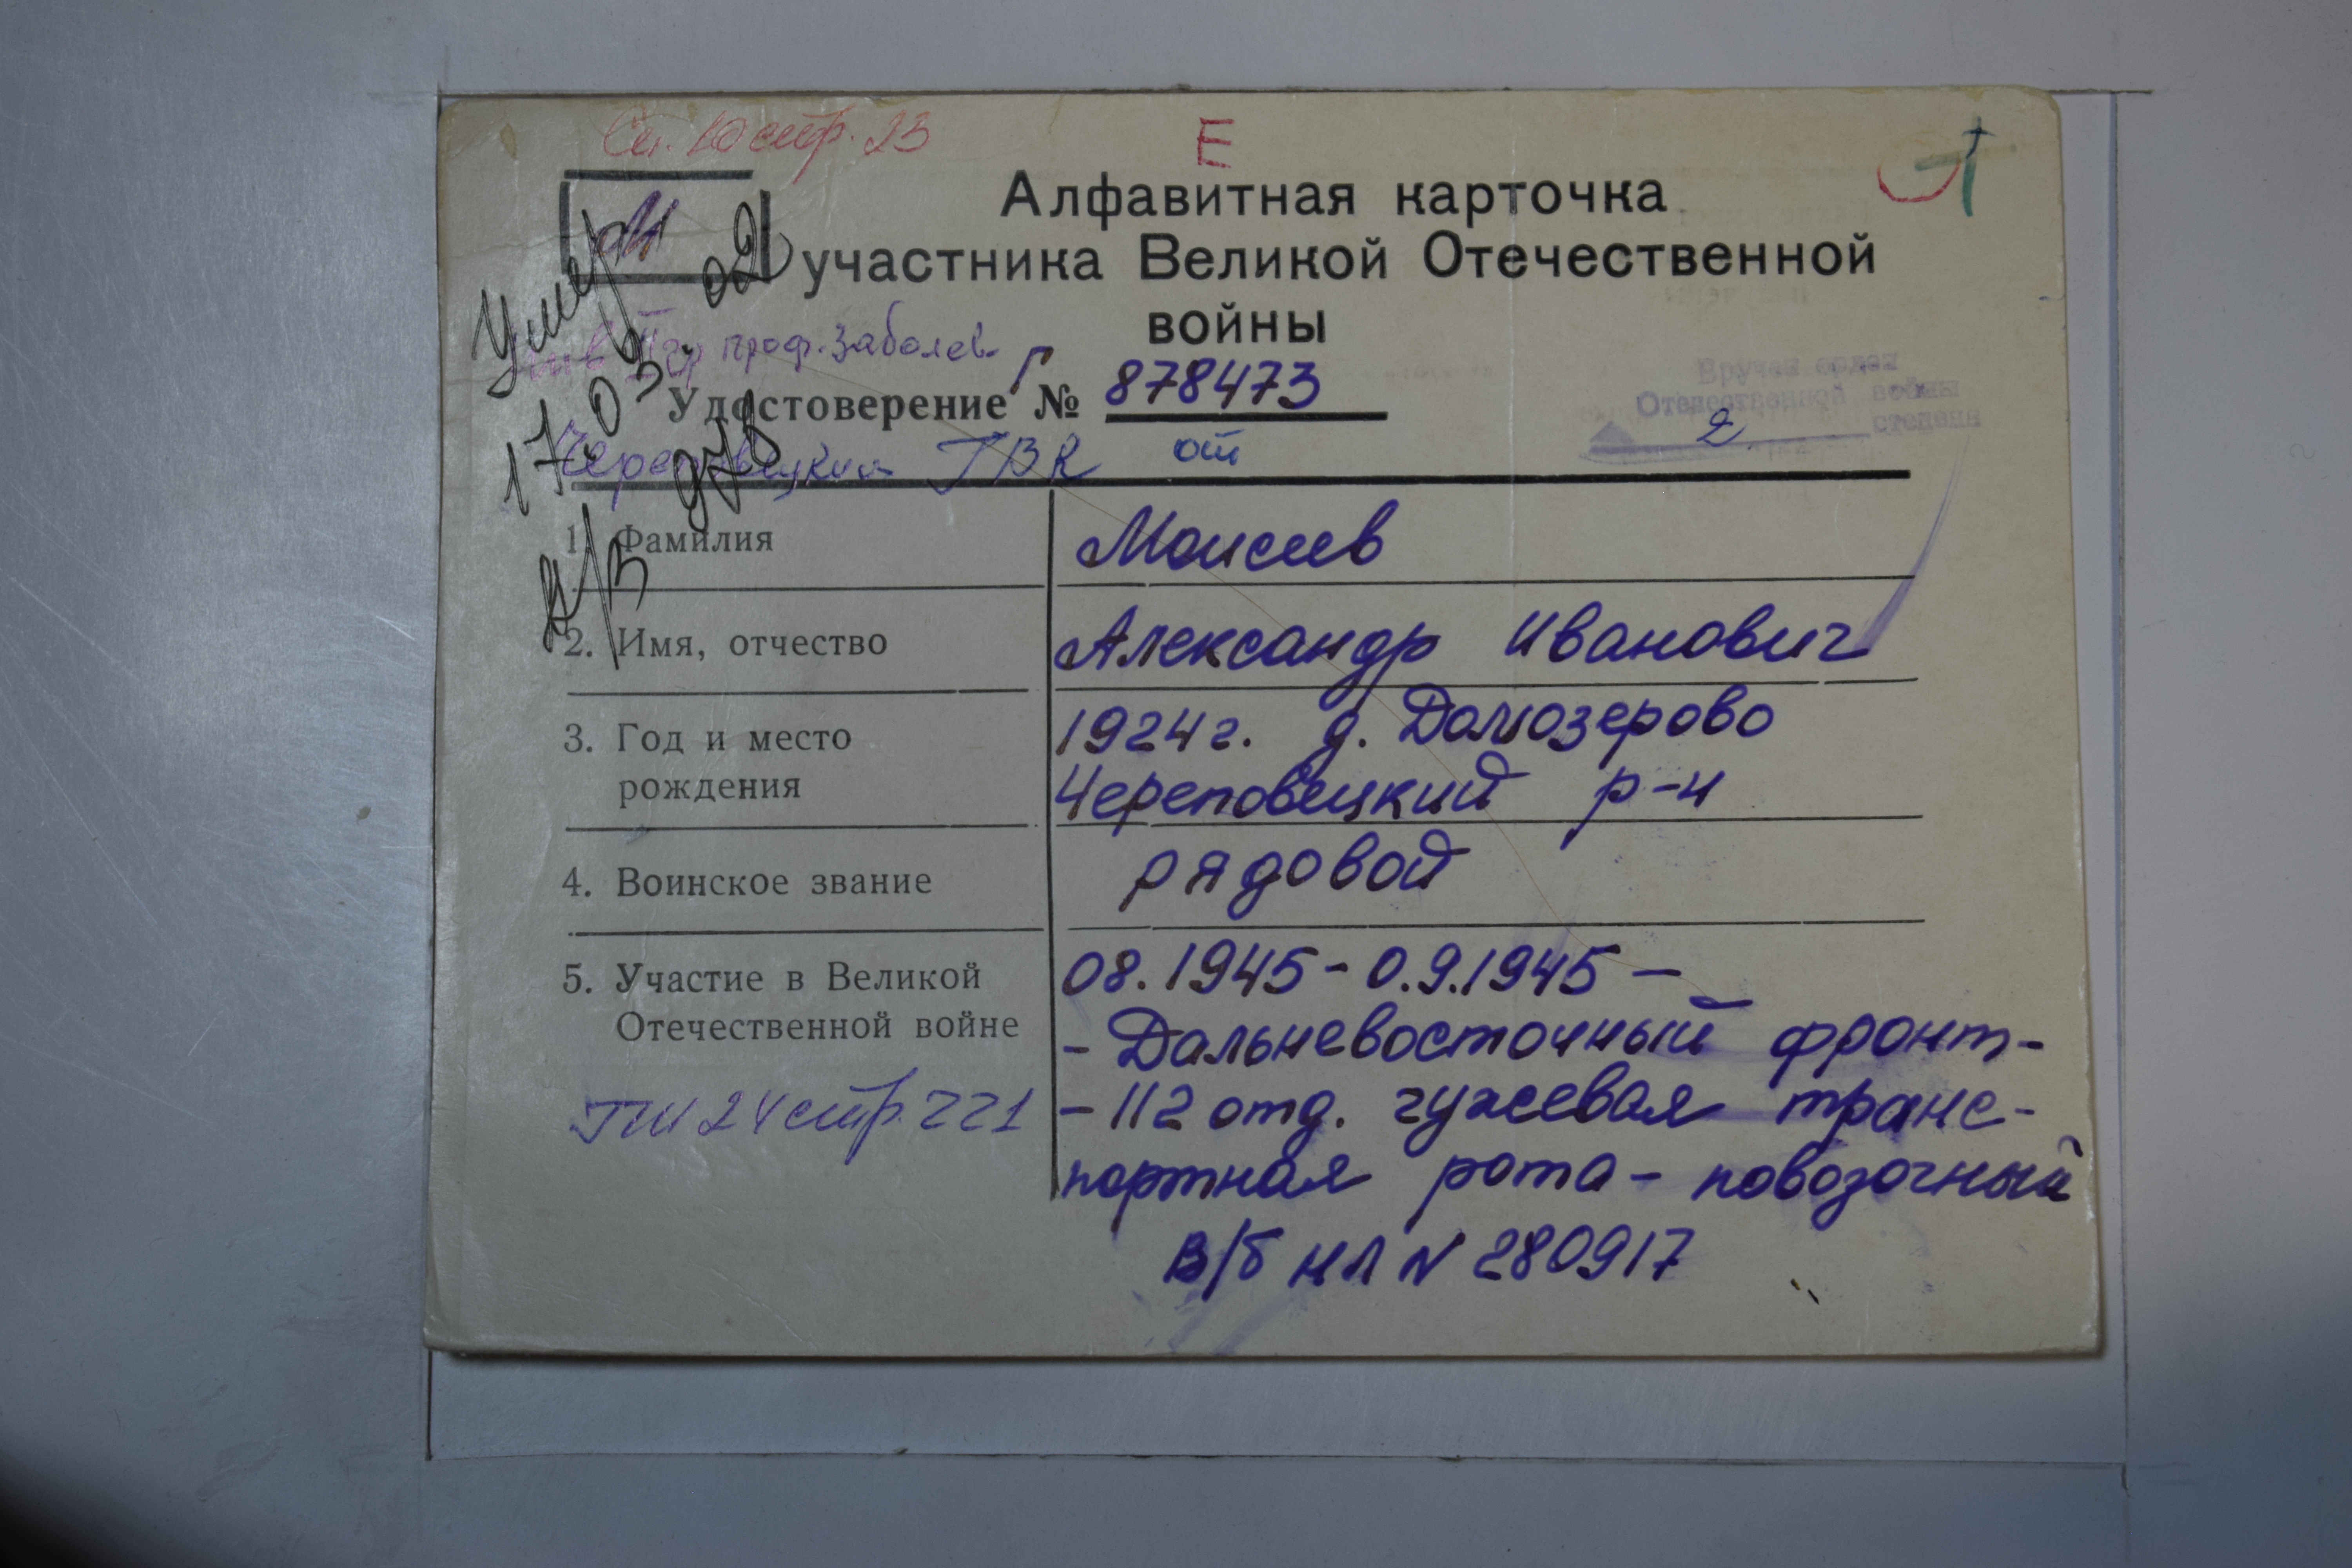 Сп. 10 стр. 23
Е
М
Алфавитная карточка
участника Великой Отечественной
войны
Умер
17.03.02
инв II гр проф. заболев.
Удостоверение Г № 878473
Череповецкий ГВК от
Вручен орден
Отечественной войны
2 степени
1. Фамилия Моисеев
2. Имя, отчество Александр Иванович
3. Год и место 1924 г. д. Домозерово
рождения Череповецкий р-н
4. Воинское звание рядовой
5. Участие в Великой 08.1945 - 0.9.1945 -
Отечественной войне - Дальневосточный фронт -
ГПИ 24 стр. 221 - 112 отд. гужевая транс-
портная рота - повозочный
в/б НЛ N 280917